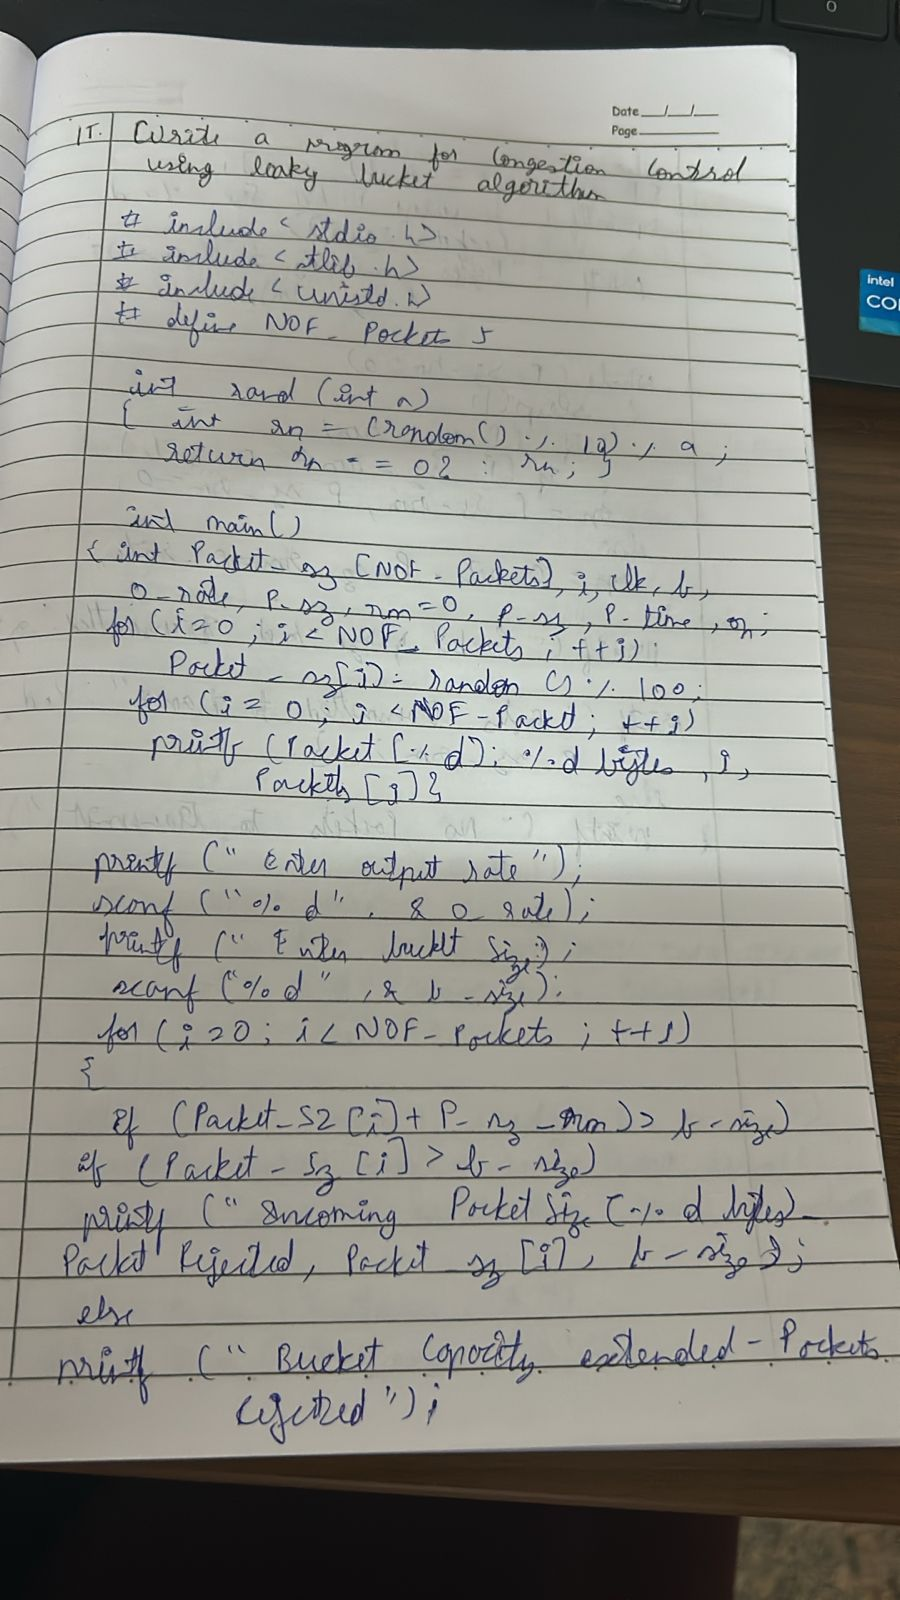 Date __/__/__
Page
17. Write a program for Congestion control
using leaky bucket algorithm
# include < stdio.h>
# include < stlib.h>
# include < unistd.h>
# define NOF_Packets 5
int rand (int a)
{ int rn = (random() % 10) % a ;
return rn == 0 ? : rn; }
int main()
{ int Packet_sz [NOF_Packets], i, clk, b,
o_rate, p_sz_rm=0, p_sz, p_time, op;
for (i=0 ; i < NOF_Packets ; ++i)
Packet_sz[i] = random () % 100;
for (i = 0; i < NOF_Packet ; ++i)
printf (Packet [%d]: %d bytes, i,
Packets [i]}
printf (" Enter output rate");
scanf (" %d", & o_rate);
printf (" Enter bucket size");
scanf ("%d", & b_size);
for (i=0; i< NOF_Packets ; ++i)
{
if (Packet_sz [i] + P_sz_rm) > b_size)
if (Packet_sz [i] > b_size)
printf (" Incoming Packet size (%d bytes)_
Packet Rejected, Packet_sz [i], b_size);
else
printf (" Bucket Capacity extended - Packets
rejected ");
intel
CO